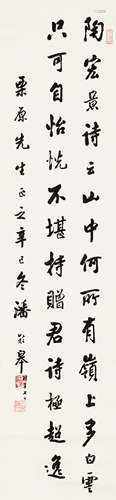 陶宏景诗云山中何所有嶺上多白雲
只可自怡悦不堪持贈君诗極超逸
栗原先生正之辛巳冬潘齡皋